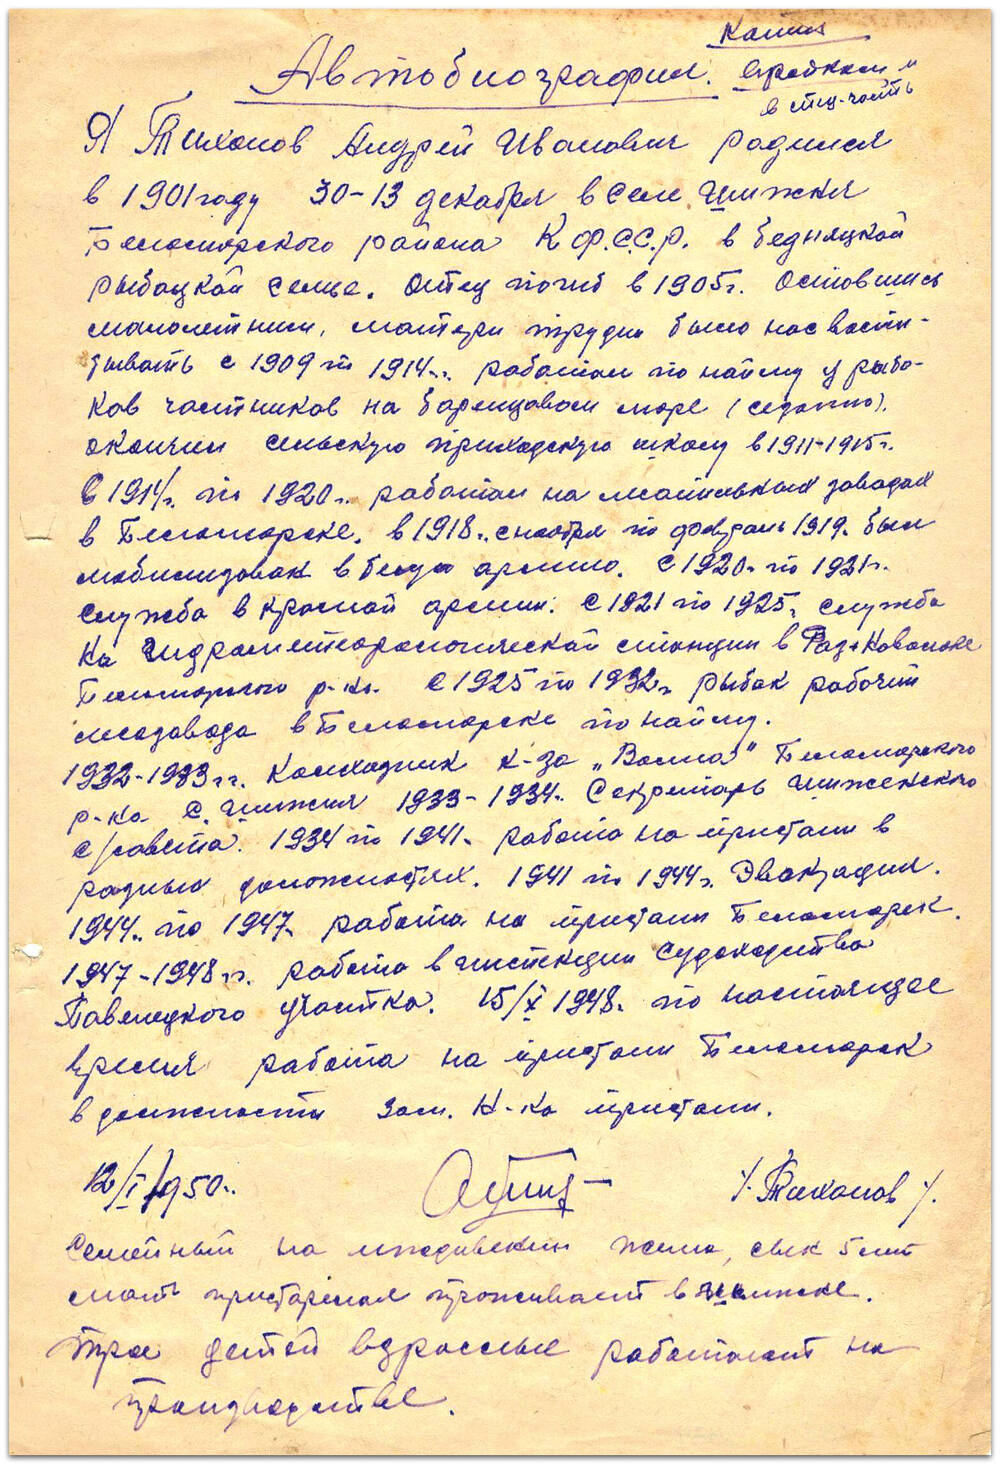 Копия
Автобиография.
в спец-часть
Я Тихонов Андрей Иванович родился
в 1901 году 30-13 декабря в селе Шижня
Беломорского района К.Ф.С.С.Р. в бедняцкой
рыбацкой семье. Отец погиб в 1905 г. Оставшись
малолетними, матери трудно было нас воспи-
тывать с 1909 по 1914 г. работал по найму у рыба-
ков частников на баренцовом море
окончил сельскую приходскую школу в 1911-1915 г.
С 1914 г. по 1920 г. работал на лесопильных заводах
в Беломорске. в 1918 г. с ноября по февраль 1919. был
мобилизован в белую армию. С 1920 г. по 1921 г.
служба в красной армии. С 1921 по 1925 г. служба
на Гидрометеорологической станции в
Беломорского р-на. С 1925 по 1932 г. рыбак рабочий
лесозавода в Беломорске по найму.
1932-1933 г.г. Колхозник к-за „Волна" Беломорского
р-на с. Шижня 1933-1934 г. Секретарь Шиженского
с/совета. 1934 по 1941 г. работа на пристани в
разных должностях. 1941 по 1944 г. Эвакуация.
1944 г. по 1947 г. работа на пристани Беломорск.
1947-1948 г.г. работа в инспекции Судоходства
Повенецкого участка. 15/X 1948 г. по настоящее
время работа на пристани Беломорск
в должности зам. Н-ка пристани.
12/I 1950 г. /. Тихонов /.
Семейный на иждивении жена, сын 5 лет
мать пристарелая проживает в Шижне.
трое детей взрослые работают на
производстве.